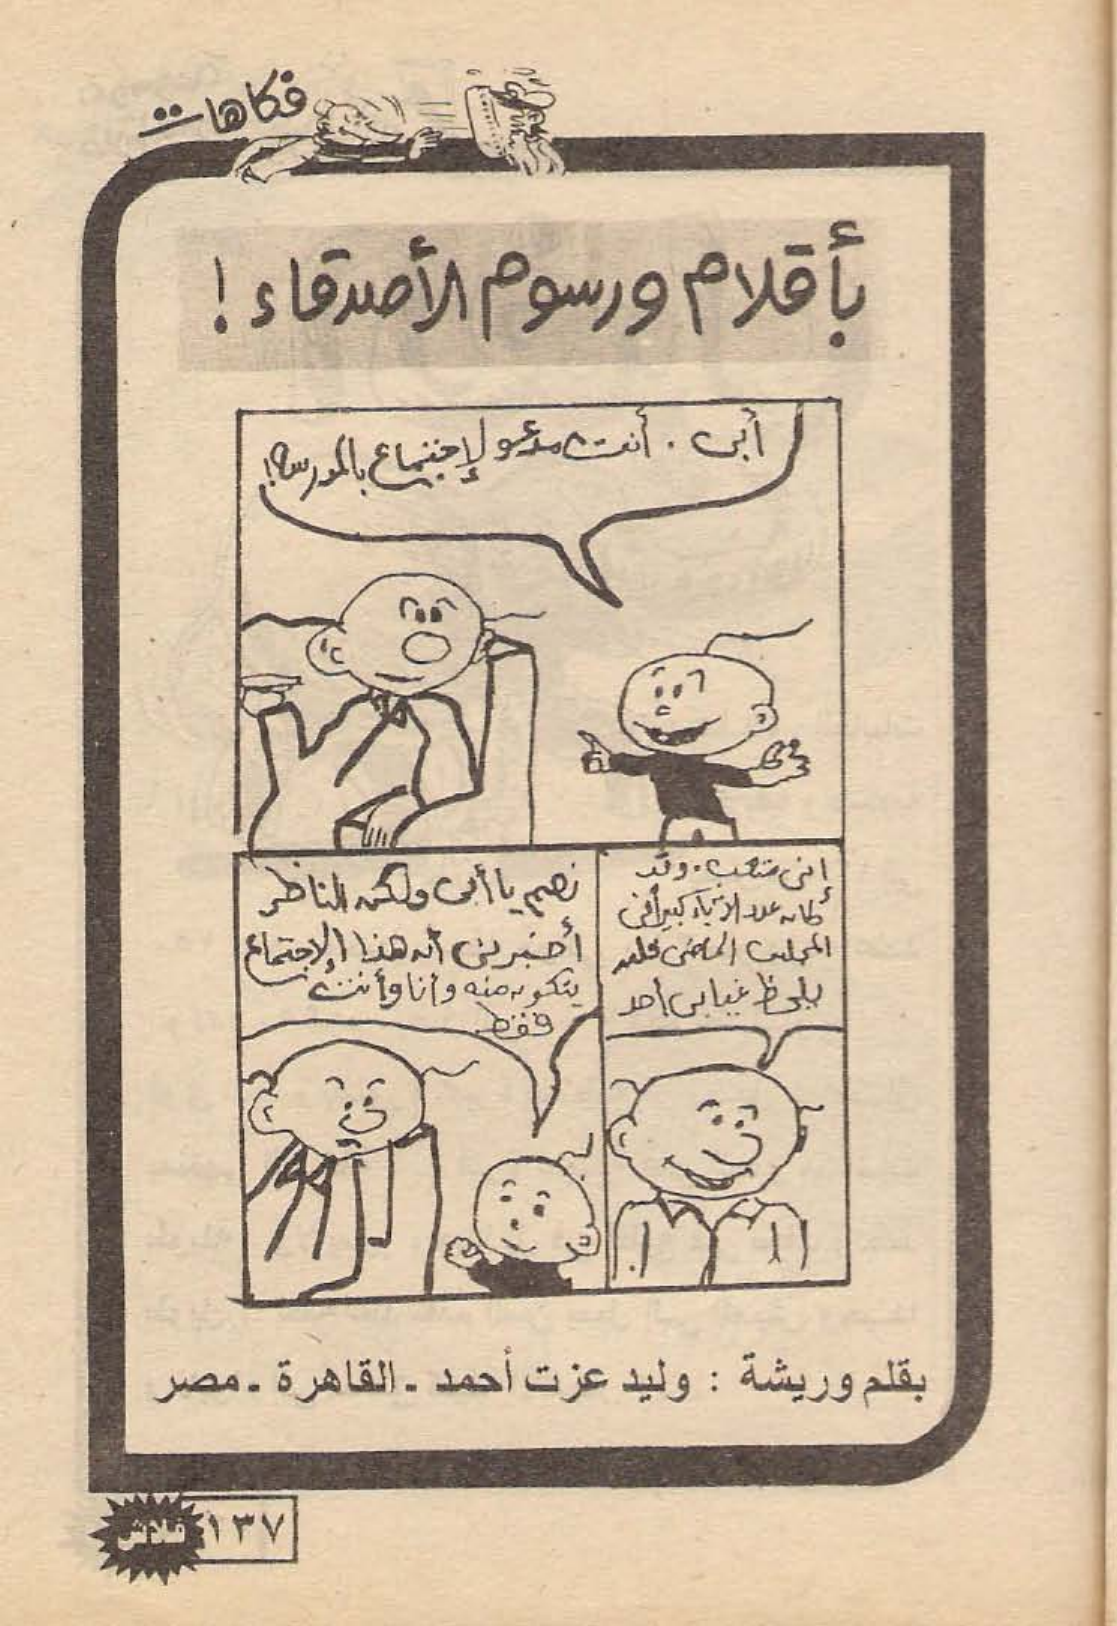 فكاهات
بأقلام ورسوم الأصدقاء !
أبى . أنت مدعو لإجتماع بالمدرسة !
إننى متعب . وقد
كان عدد الآباء كبيراً فى
المجلس الماضى فلم
يلحظ غيابى أحد
نعم يا أبى ولكن الناظر
أخبرنى أن هذا الإجتماع
يتكون منه وأنا وأنت
فقط
بقلم وريشة : وليد عزت أحمد ـ القاهرة ـ مصر
فلاش ١٣٧